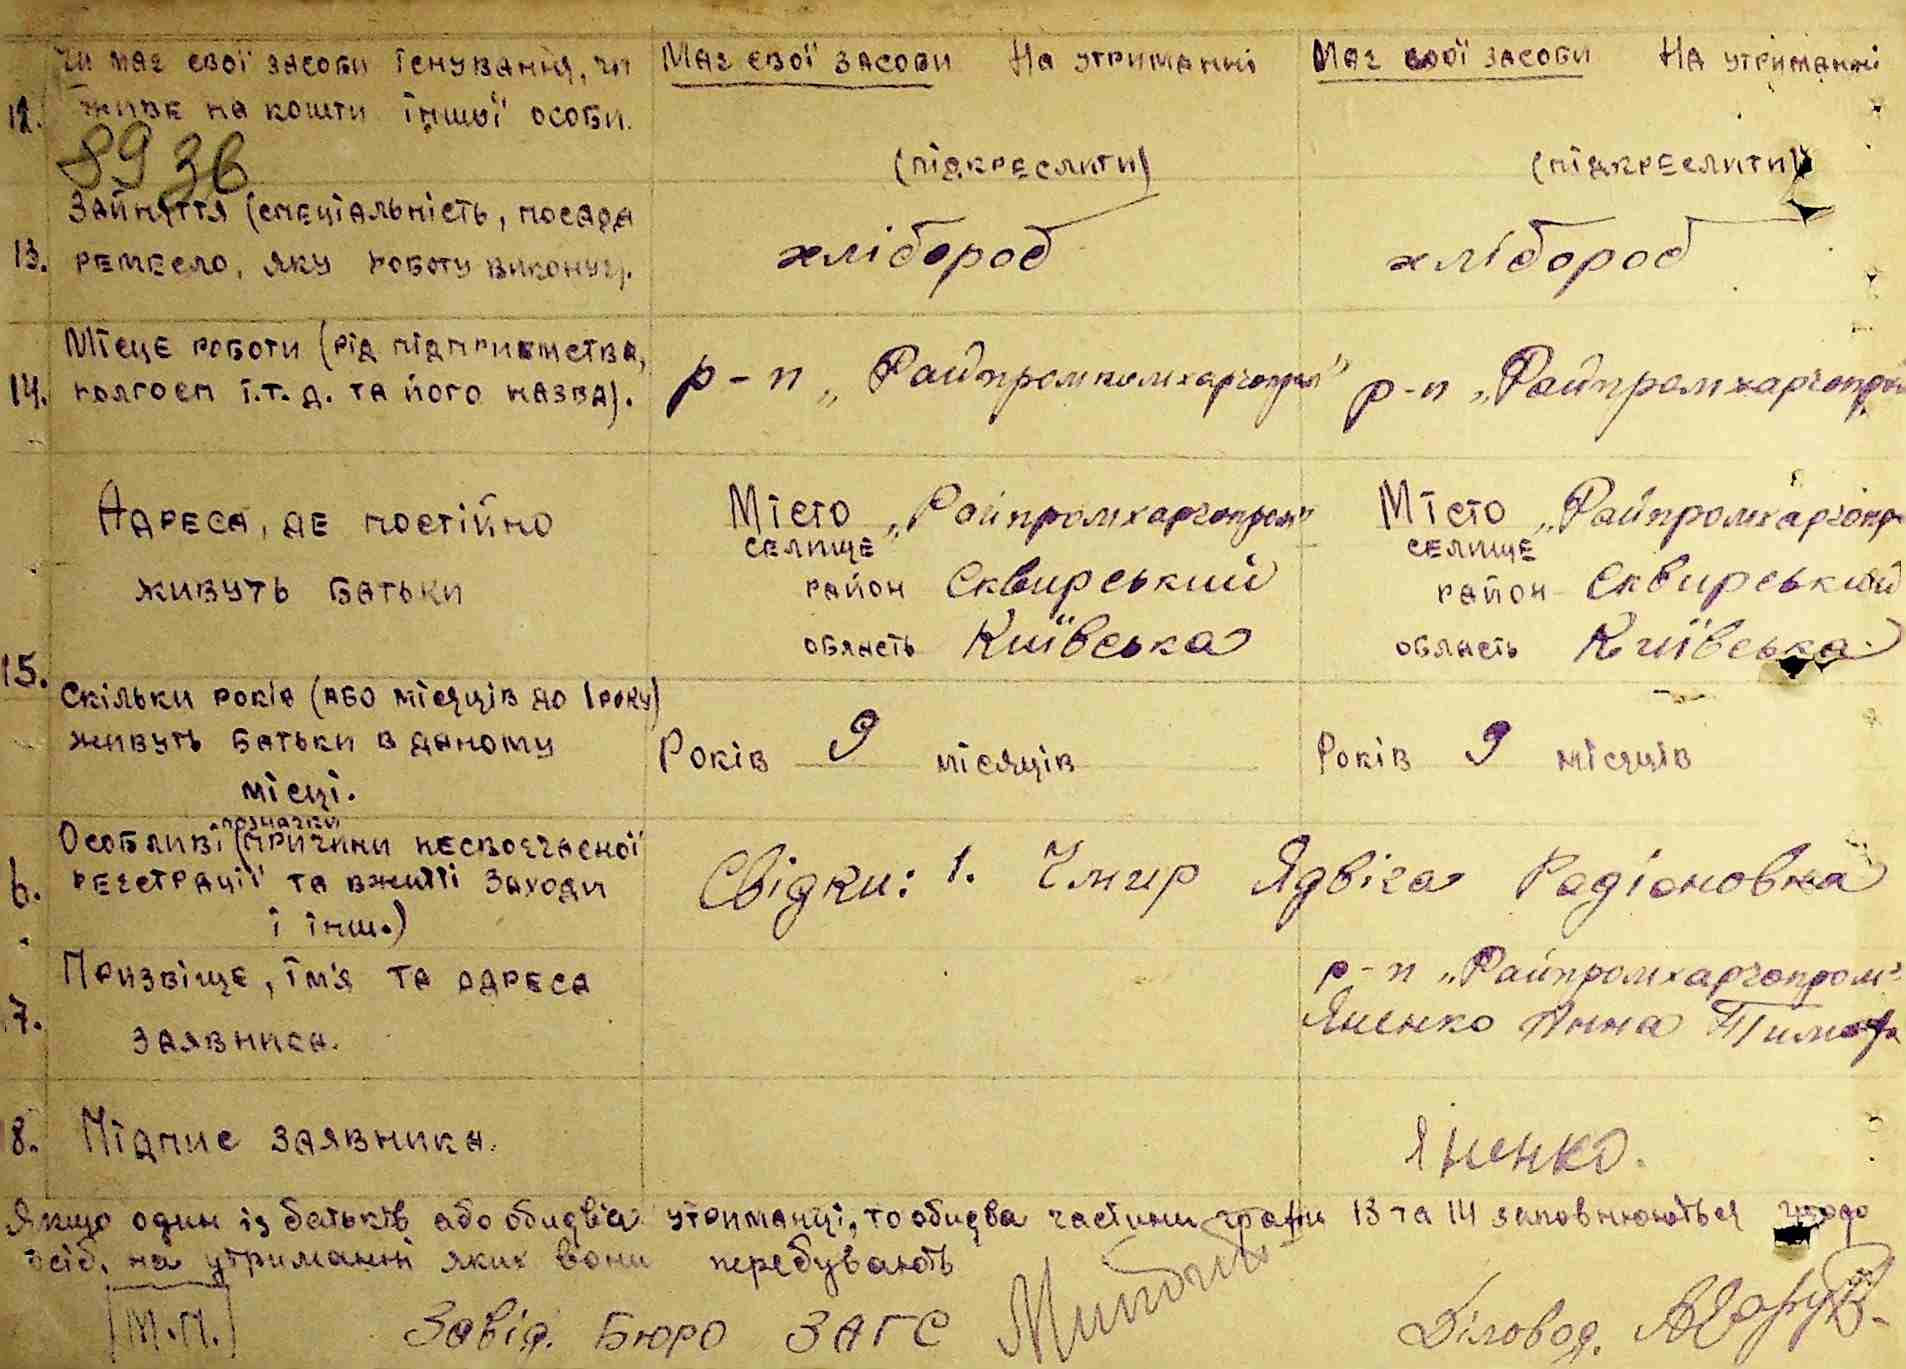 12. Чи має свої засоби існування, чи
живе на кошти іншої особи.
Має свої засоби На утриманні
(підкреслити)
Має свої засоби На утриманні
(підкреслити)
8936
13. Зайняття (спеціальність, посада
ремесло, яку роботу виконує).
хлібороб
хлібороб
14. Місце роботи (рід підприємства,
колгосп і.т.д. та його назва).
р-п „Райпромхарчопром"
р-п „Райпромхарчопром
Адреса, де постійно
живуть батьки
Місто „Райпромхарчопром"
селище
район Сквирський
область Київська
Місто „Райпромхарчопр
селище
район Сквирський
область Київська
15. Скільки років (або місяців до 1 року)
живуть батьки в даному
місці.
Років 9 місяців
Років 9 місяців
позначки
6. Особливі (причини несвоєчасної
регстрації та вжиті заходи
і інш.)
Свідки: 1. Чмир Ядвіга Радіоновна
7. Призвіще, ім'я та адреса
заявниса.
р-п „Райпромхарчопром"
Яненко Анна
8. Підпис заявника.
Яненко.
Якщо один із батьків або обидва утриманці, то обидва частини графи 13 та 14 заповнюються щодо
осіб, на утриманні яких вони перебувають
М.П.
Завід. Бюро ЗАГС
Діловод.